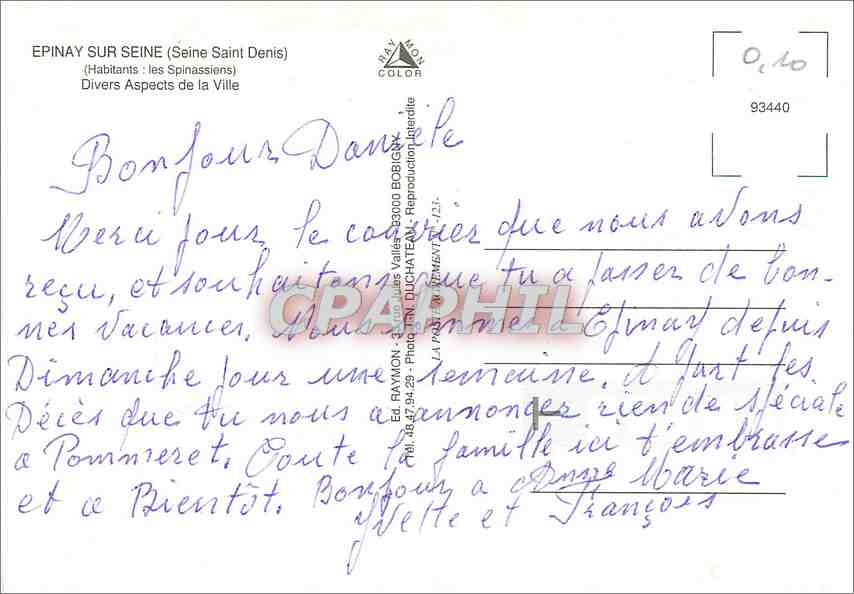 EPINAY SUR SEINE (Seine Saint Denis)
(Habitants : les Spinassiens)
Divers Aspects de la Ville
RAYMON
COLOR
0,10
93440
Ed. RAYMON - 3, rue Jules Vallès - 93000 BOBIGNY
Tél. 48.47.94.29 - Photo J.-N. DUCHATEAU - Reproduction Interdite
-123-
CPAPHIL
Bonjour Danièle
Merci pour le courrier que nous avons
reçu, et souhaitons que tu a passer de bon-
nes vacances. Nous sommes a Epinay depuis
Dimanche pour une semaine. A part les
Décès que tu nous a annoncer rien de spéciale
a Pommeret. Toute la famille ici t'embrasse
et a Bientôt. Bonjour a Anne Marie
Yvette et François